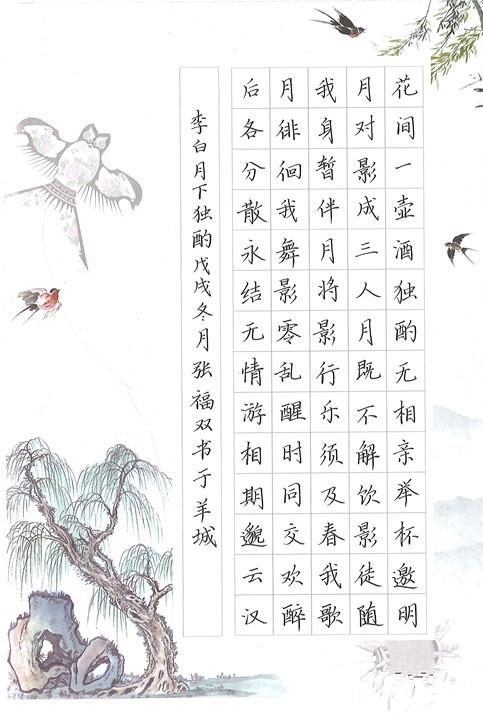 花间一壶酒独酌无相亲举杯邀明
月对影成三人月既不解饮影徒随
我身暂伴月将影行乐须及春我歌
月徘徊我舞影零乱醒时同交欢醉
后各分散永结无情游相期邈云汉
李白月下独酌戊戌冬月张福双书于羊城